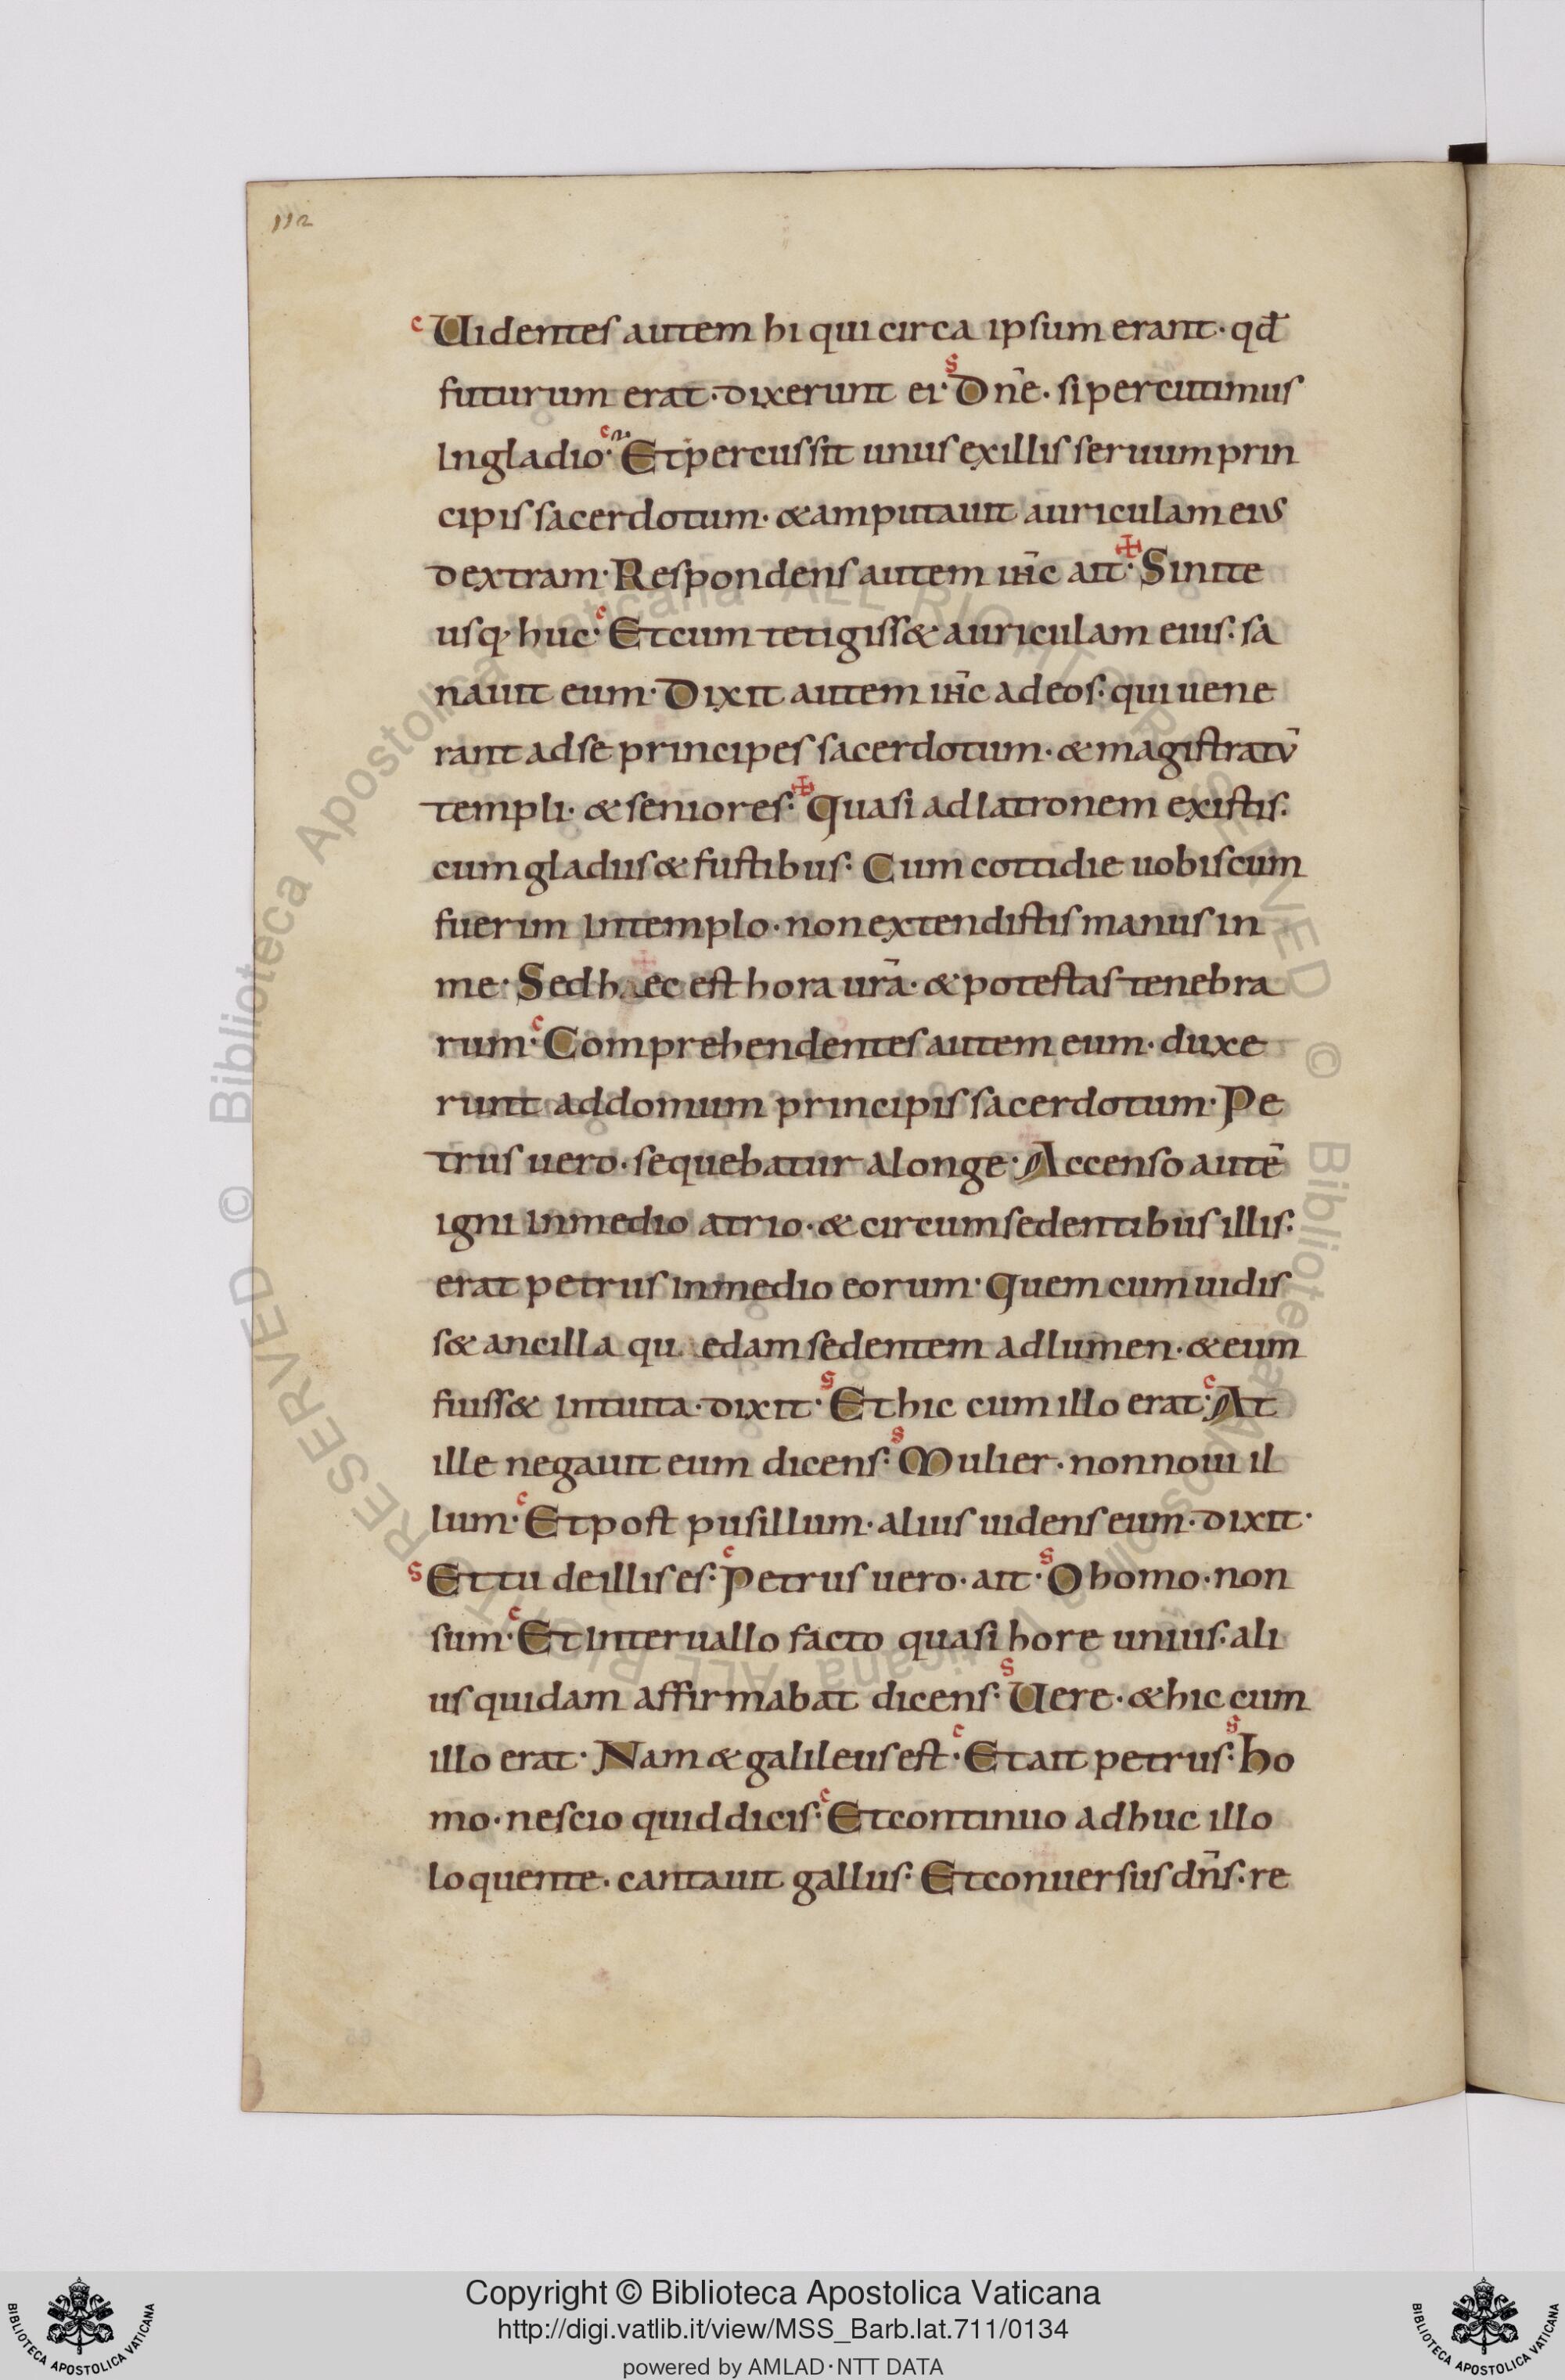 112
c Uidentes autem hi qui circa ipsum erant· qđ
futurum erat· dixerunt ei· s Dn̄e· si percutimus
In gladio· c Et percussit unus ex illis seruum prin
cipis sacerdotum· & amputauit auriculam eius
dextram· Respondens autem ih̄c ait· ✠ Sinite
usq· huc· c Et cum tetigiss& auriculam eius· sa
nauit eum· Dixit autem ih̄c ad eos· qui uene
rant ad se principes sacerdotum· & magistratū
templi· & seniores· ✠ Quasi ad latronem existis·
cum gladiis & fustibus· Cum cottidie uobiscum
fuerim In templo· non extendistis manus in
me· Sed haec est hora ur̄a· & potestas tenebra
rum· c Comprehendentes autem eum· duxe
runt ad domum principis sacerdotum· Pe
trus uero· sequebatur a longe· Accenso autē
igni In medio atrio· & circumsedentibus illis·
erat petrus in medio eorum· Quem cum uidis
s& ancilla quedam sedentem ad lumen· & eum
fuiss& Intuita· dixit· s Et hic cum illo erat· c At
ille negauit eum dicens· s Mulier· non noui il
lum· c Et post pusillum· alius uidens eum· dixit·
s Et tu de illis es· c Petrus uero· ait· s O homo· non
sum· c Et Interuallo facto quasi hore unius· ali
us quidam affirmabat dicens· s Uere· & hic cum
illo erat· Nam & galileus est· c Et ait petrus· s Ho
mo· nescio quid dicis· c Et continuo adhuc illo
loquente· cantauit gallus· Et conuersus dn̄s· re
Copyright © Biblioteca Apostolica Vaticana
http://digi.vatlib.it/view/MSS_Barb.lat.711/0134
powered by AMLAD·NTT DATA
BIBLIOTECA APOSTOLICA VATICANA
BIBLIOTECA APOSTOLICA VATICANA